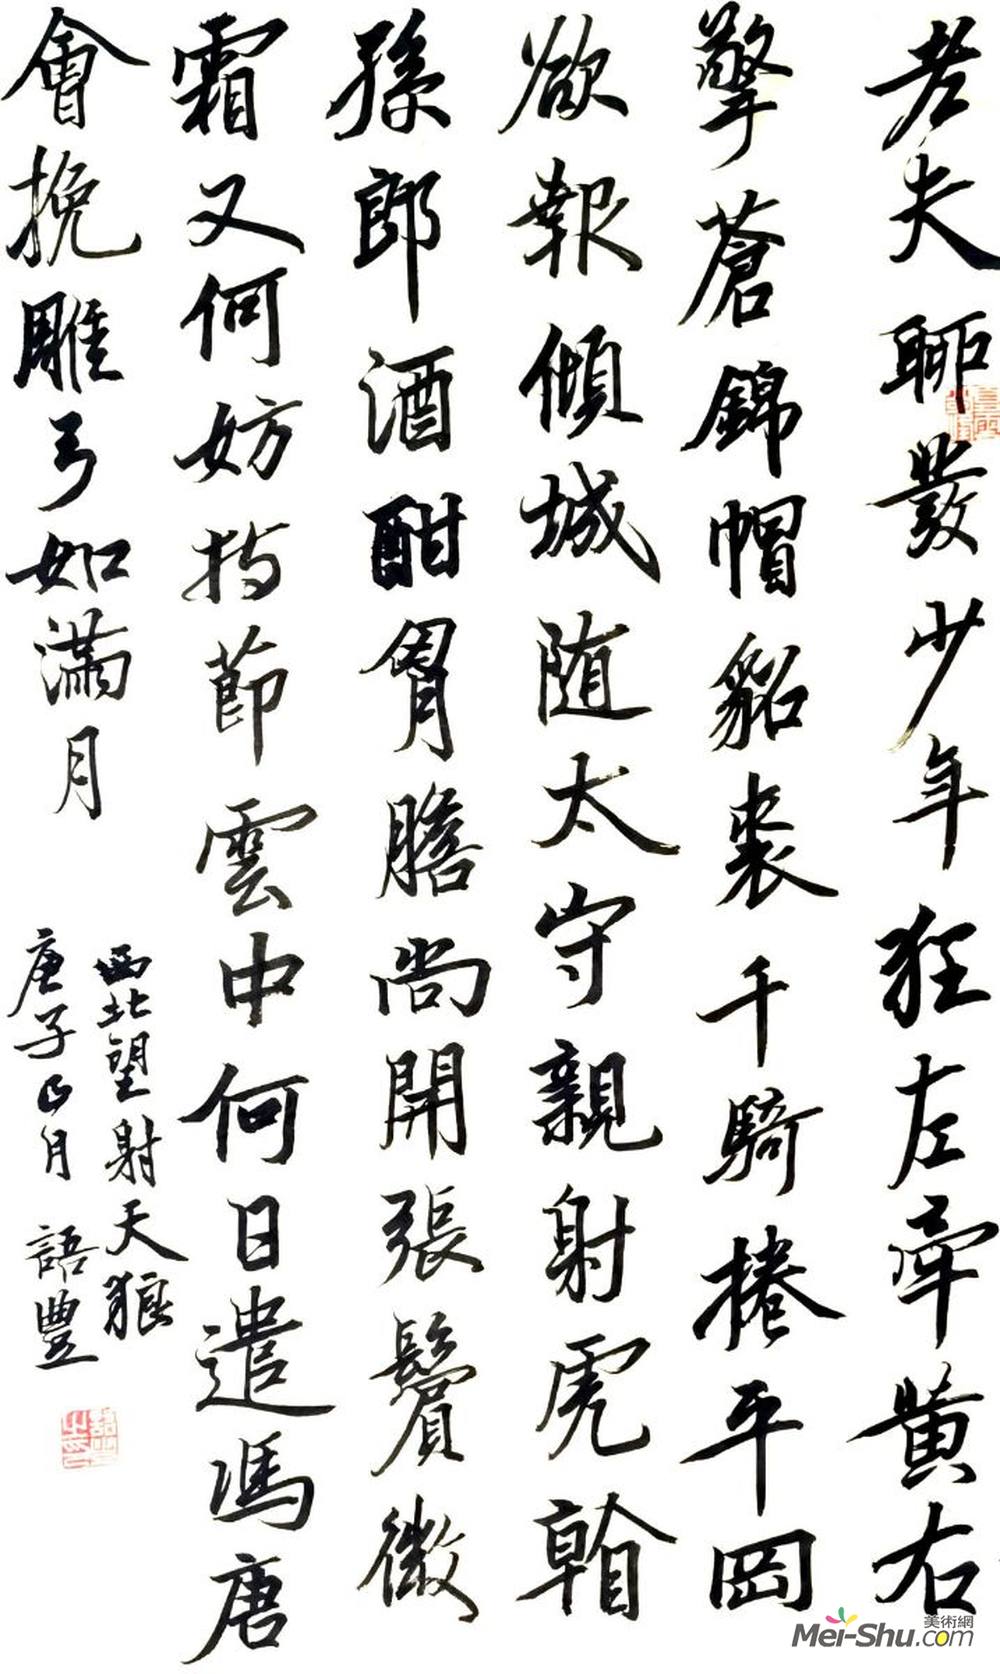 老夫聊發少年狂左牽黃右
擎蒼錦帽貂裘千騎捲平岡
欲報傾城随太守親射虎看
孫郎酒酣胷膽尚開張鬢微
霜又何妨持節雲中何日遣馮唐
會挽雕弓如滿月
西北望射天狼
庚子正月 語豐
美術網
Mei-Shu.com